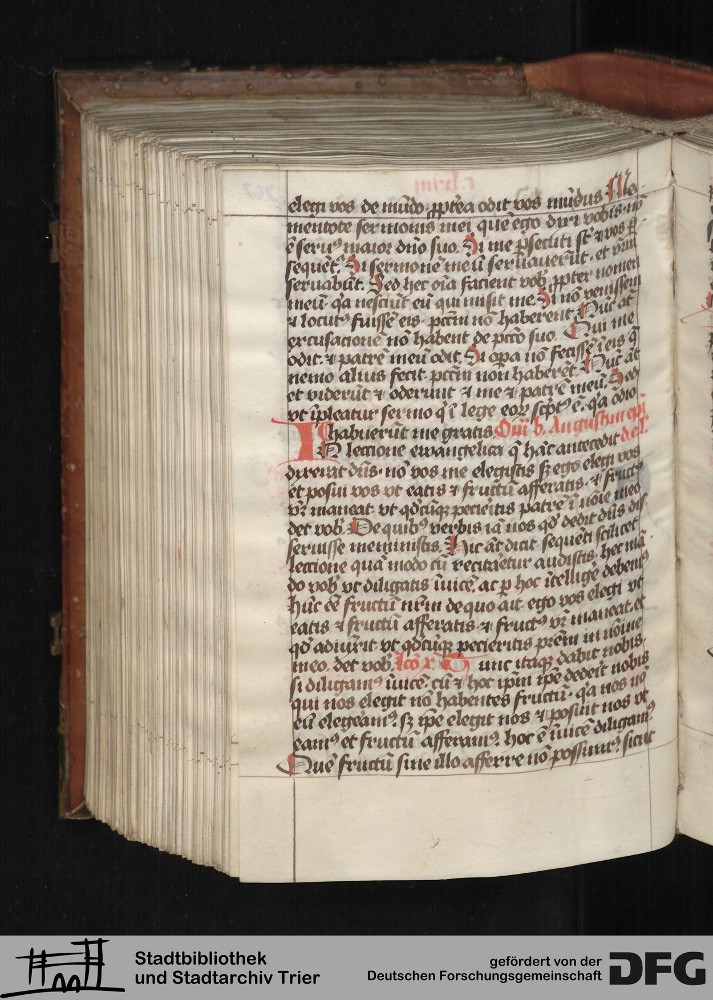 elegi vos de mūdo. ꝓpt̄ea odit vos mūdus Me
mentote sermonis mei quē ego dixi vobis. nō
ē seruꝰ maior dn̄o suo. Si me ꝑsecuti sūt & vos ꝑ
sequēt̄. Si sermonē meū seruauerūt. et vr̄m
seruabūt. Sed hec oīa facient vob̄ ꝓpter nomen
meū. qa nesciūt eū qui misit me. Si nō venissem
& locutꝰ fuissē eis. pctm̄ nō haberent Nūc āt
excusacionē nō habent de pctō suo. Qui me
odit. & patrē meū odit. Si opa nō fecissē ī eis q̄
nemo alius fecit. pctm̄ non haberēt. Nūc āt
et viderūt & oderunt & me & patrē meū. Sed
vt īpleatur sermo q̄ ī lege eoꝝ scptꝰ ē. qa odio
habuerūt me gratis Om̄ b. Augustini epī.
IN leccione ewangelica q̄ hāc antecedit d.e.l.
dixerat dn̄s. nō vos me elegistis sꝫ ego elegi vos
et posui vos vt eatis & fructū afferatis. & fructꝰ
vr̄ maneat. vt qd̄cūqꝫ pecieritis patrē ī noīe meo
det vob̄. De quibꝰ verbis iā nos qd̄ dedit dn̄s dis
seruisse meministis. Hic āt dicit. sequēti scilicet
leccione quā modo cū recitaretur audistis. hec mā
do vob̄ vt diligatis īuicē. ac ꝑ hoc ītelligē debemꝰ
hūc eē fructū nr̄m de quo ait. ego vos elegi vt
eatis & fructū afferatis. & fructꝰ vr̄ maneat. et
qd̄ adiūxit vt qd̄cūqꝫ pecieritis prēm in noīne
meo. det vob̄. Tunc itaqꝫ dabit nobis
si diligamꝰ īuicē. cū & hoc ipm̄ ip̄e dederit nobis
qui nos elegit nō habentes fructū. qa nos nō
eū elegeramꝰ. sꝫ ip̄e elegit nos & posuit nos vt
eamꝰ et fructū afferamꝰ. hoc ē īuicē diligamꝰ.
Quē fructū sine illo afferre nō possumꝰ. sicut
Stadtbibliothek
und Stadtarchiv Trier
gefördert von der
Deutschen Forschungsgemeinschaft DFG